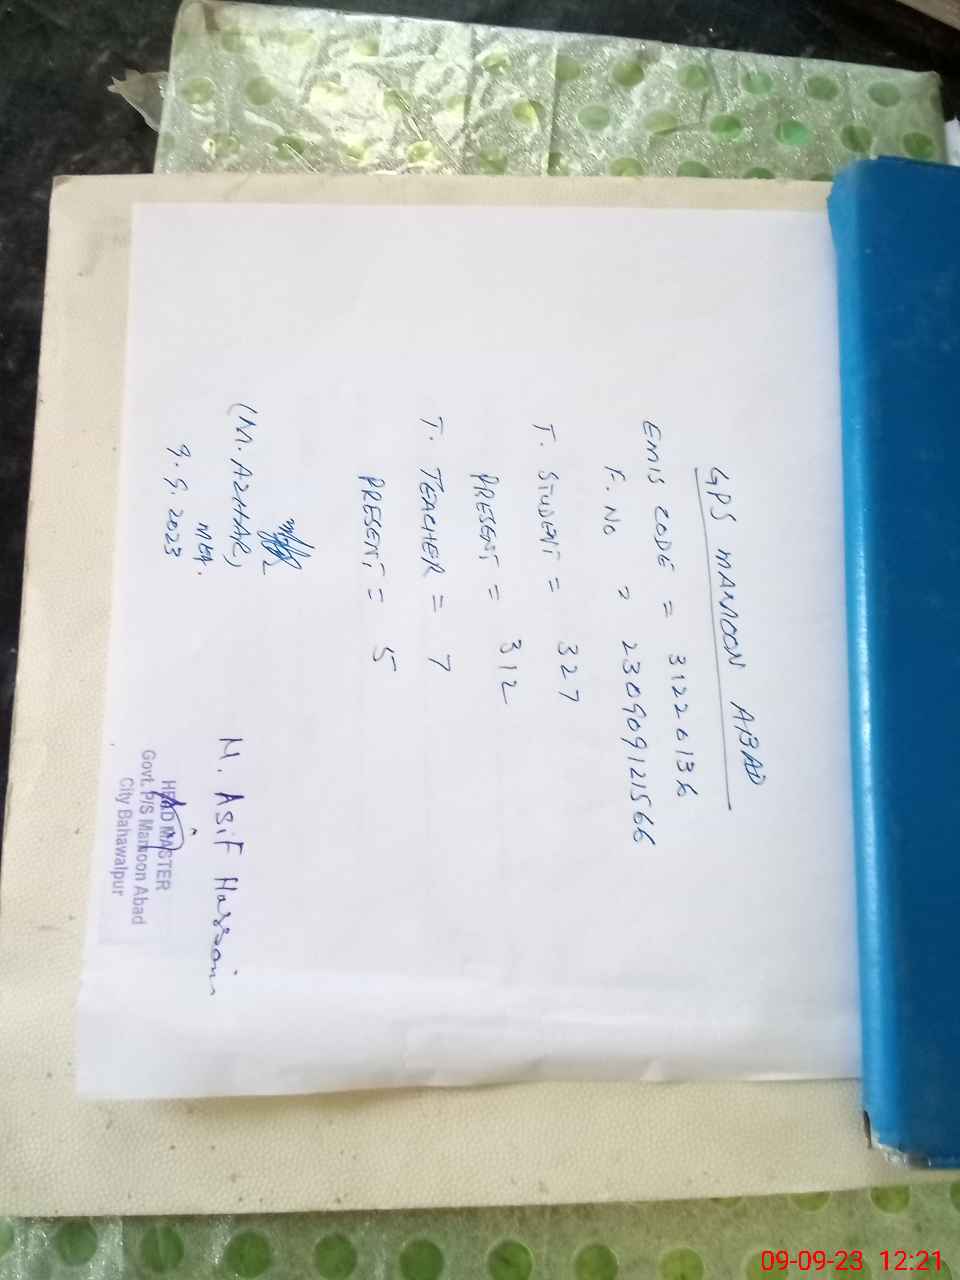 GPS MAMOON ABAD
EMIS CODE = 31220136
F. No = 230909121566
T. STUDENT = 327
PRESENT = 312
T. TEACHER = 7
PRESENT = 5
(M. AZHAR)
MEA.
9.9.2023
M. ASiF Hussain
HEAD MASTER
Govt. P/S Mamoon Abad
City Bahawalpur
09-09-23 12:21